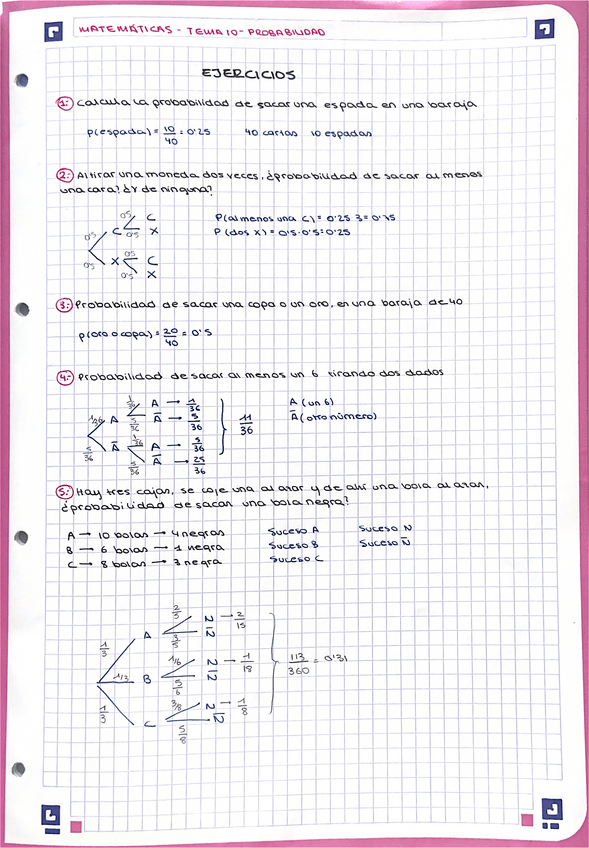 MATEMÁTICAS - TEMA 10 - PROBABILIDAD
EJERCICIOS
1: Calcula la probabilidad de sacar una espada en una baraja
P(espada) = 10/40 = 0'25 40 cartas 10 espadas
2: Al tirar una moneda dos veces, ¿probabilidad de sacar al menos
una cara? ¿Y de ninguna?
0'5 C
0'5 C 0'5 X
0'5 X 0'5 C
0'5 X
P(al menos una C) = 0'25·3 = 0'75
P(dos X) = 0'5·0'5 = 0'25
3: Probabilidad de sacar una copa o un oro, en una baraja de 40
P(oro o copa) = 20/40 = 0'5
4: Probabilidad de sacar al menos un 6 tirando dos dados
1/36 A → 1/36
1/36 A 5/36 Ā → 5/36
5/36 Ā 1/36 A → 5/36
5/36 Ā → 25/36
11/36
A (un 6)
Ā (otro número)
5: Hay tres cajas, se coje una al azar y de ahí una bola al azar,
¿probabilidad de sacar una bola negra?
A → 10 bolas → 4 negras Suceso A Suceso N
B → 6 bolas → 1 negra Suceso B Suceso N̄
C → 8 bolas → 3 negra Suceso C
1/3 A 2/5 N → 2/15
3/5 N̄
1/3 B 1/6 N → 1/18
5/6 N̄
1/3 C 3/8 N → 1/8
5/8 N̄
113/360 = 0'31